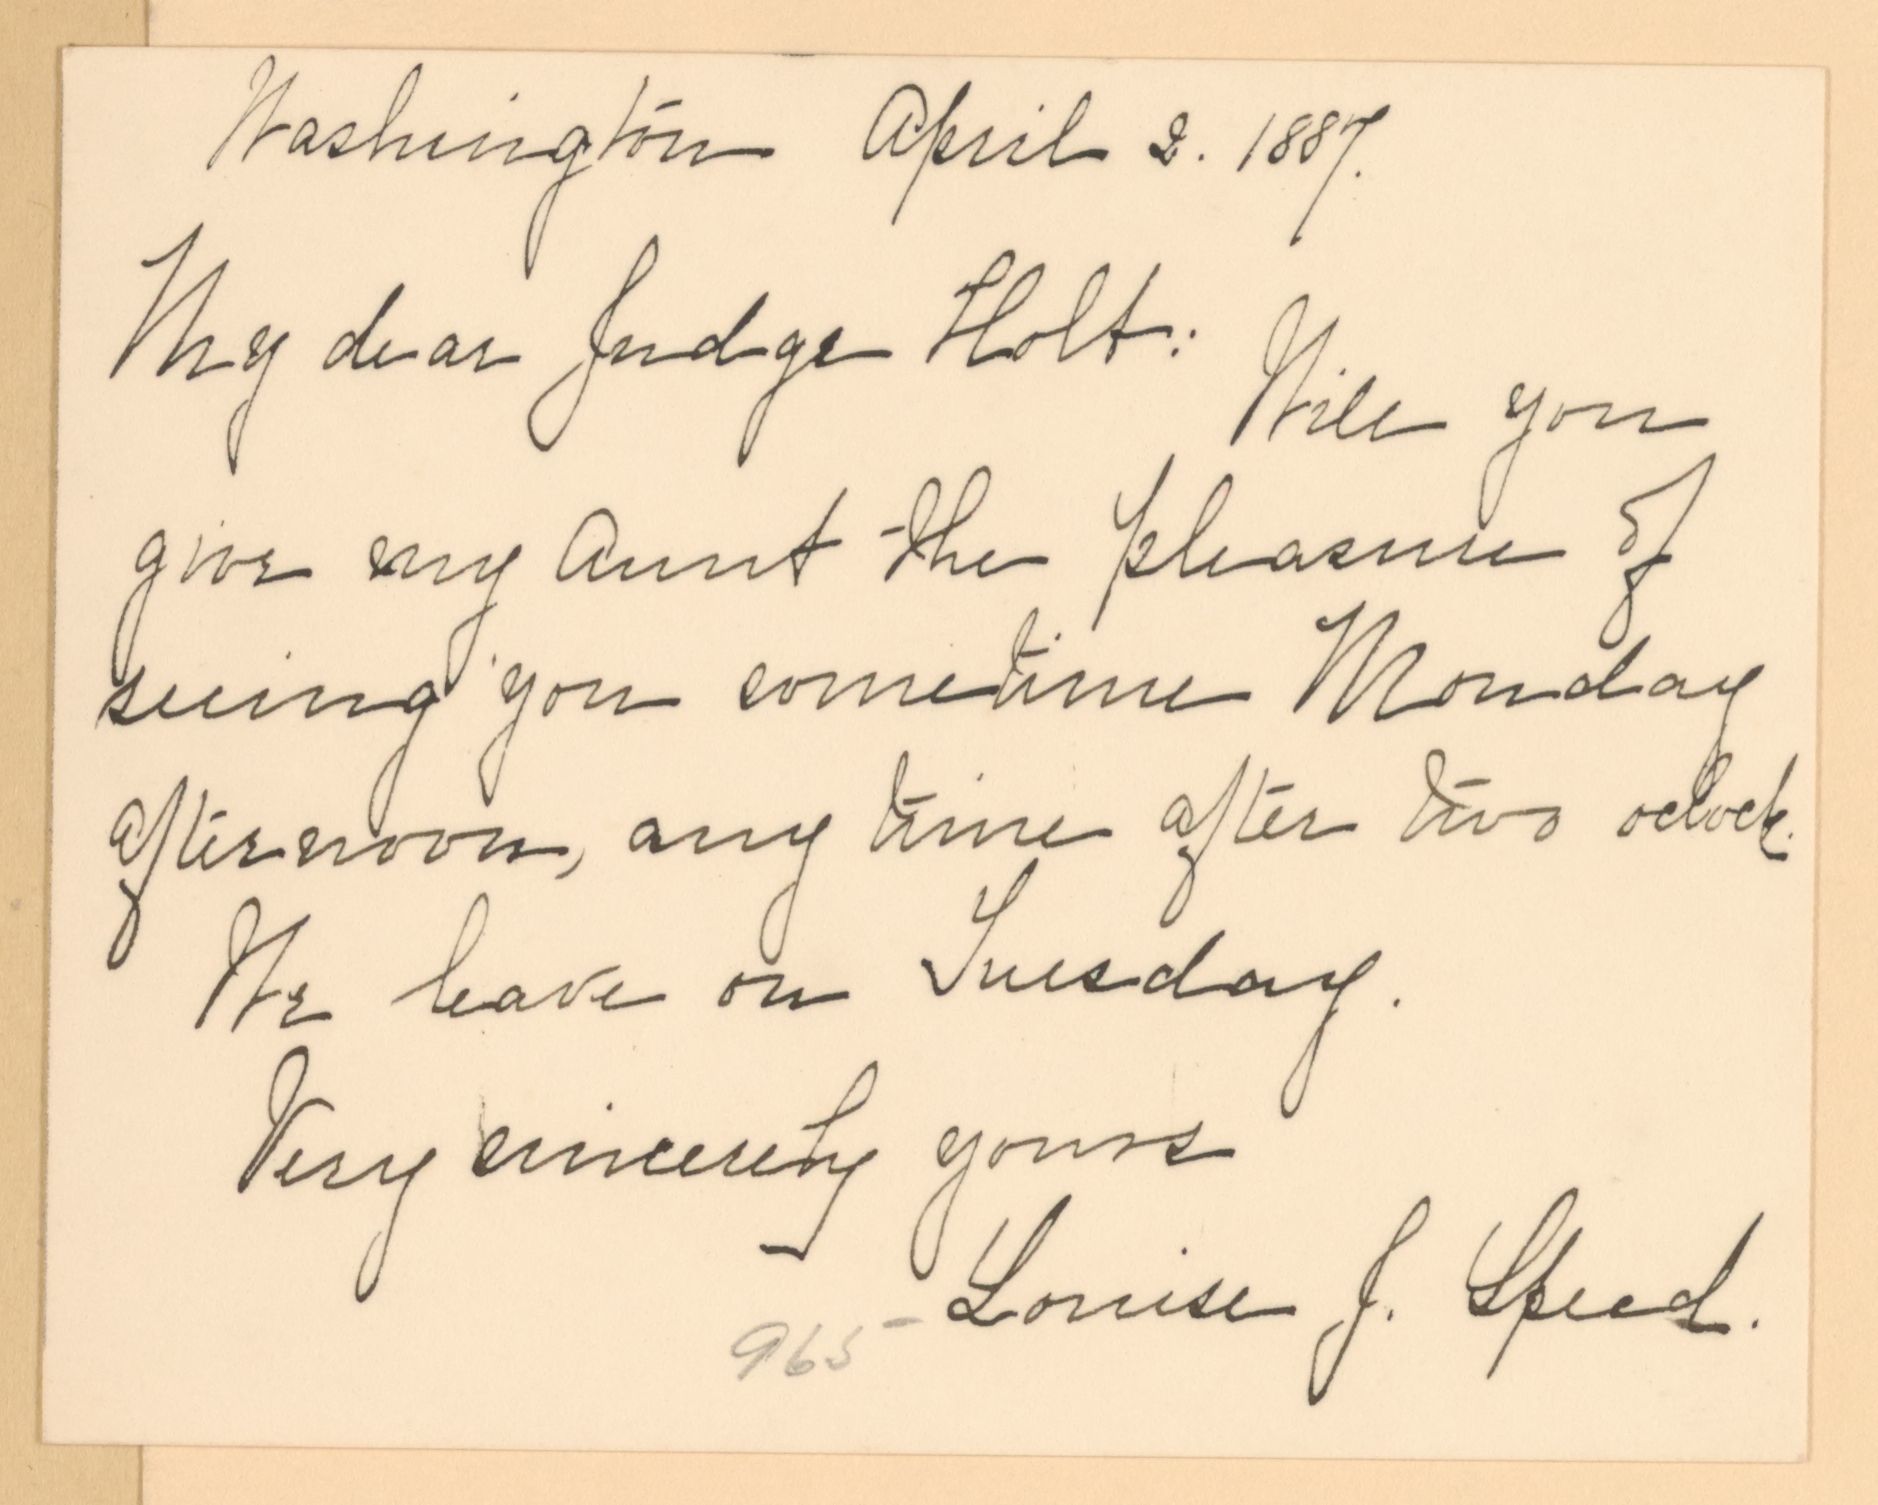 Washington April 2. 1887.
My dear Judge Holt:
Will you
give my Aunt the pleasure of
seeing you sometime Monday
afternoon, any time after two oclock.
We leave on Tuesday.
Very sincerely yours
Louise J. Speed.
965